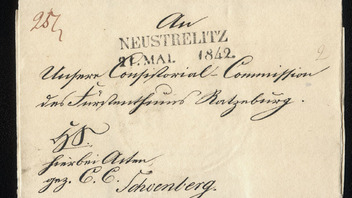 An
NEUSTRELITZ
21. MAI. 1842.
Unsere Consistorial-Commission
des Fürstenthums Ratzeburg.
HS.
hierbei Acten
gez. C. C. Schoenberg.